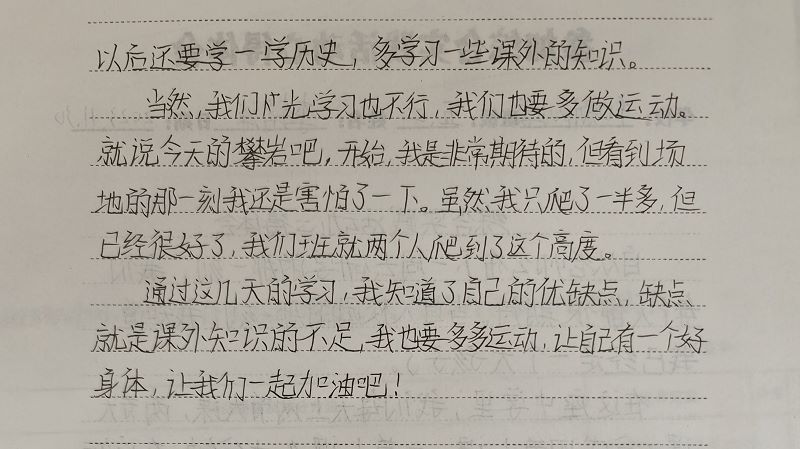 以后还要学一学历史，多学习一些课外的知识。
当然，我们光学习也不行，我们也要多做运动。
就说今天的攀岩吧，开始，我是非常期待的，但看到场
地的那一刻我还是害怕了一下。虽然我只爬了一半多，但
已经很好了，我们班就两个人爬到了这个高度。
通过这几天的学习，我知道了自己的优缺点，缺点
就是课外知识的不足，我也要多多运动，让自己有一个好
身体，让我们一起加油吧！